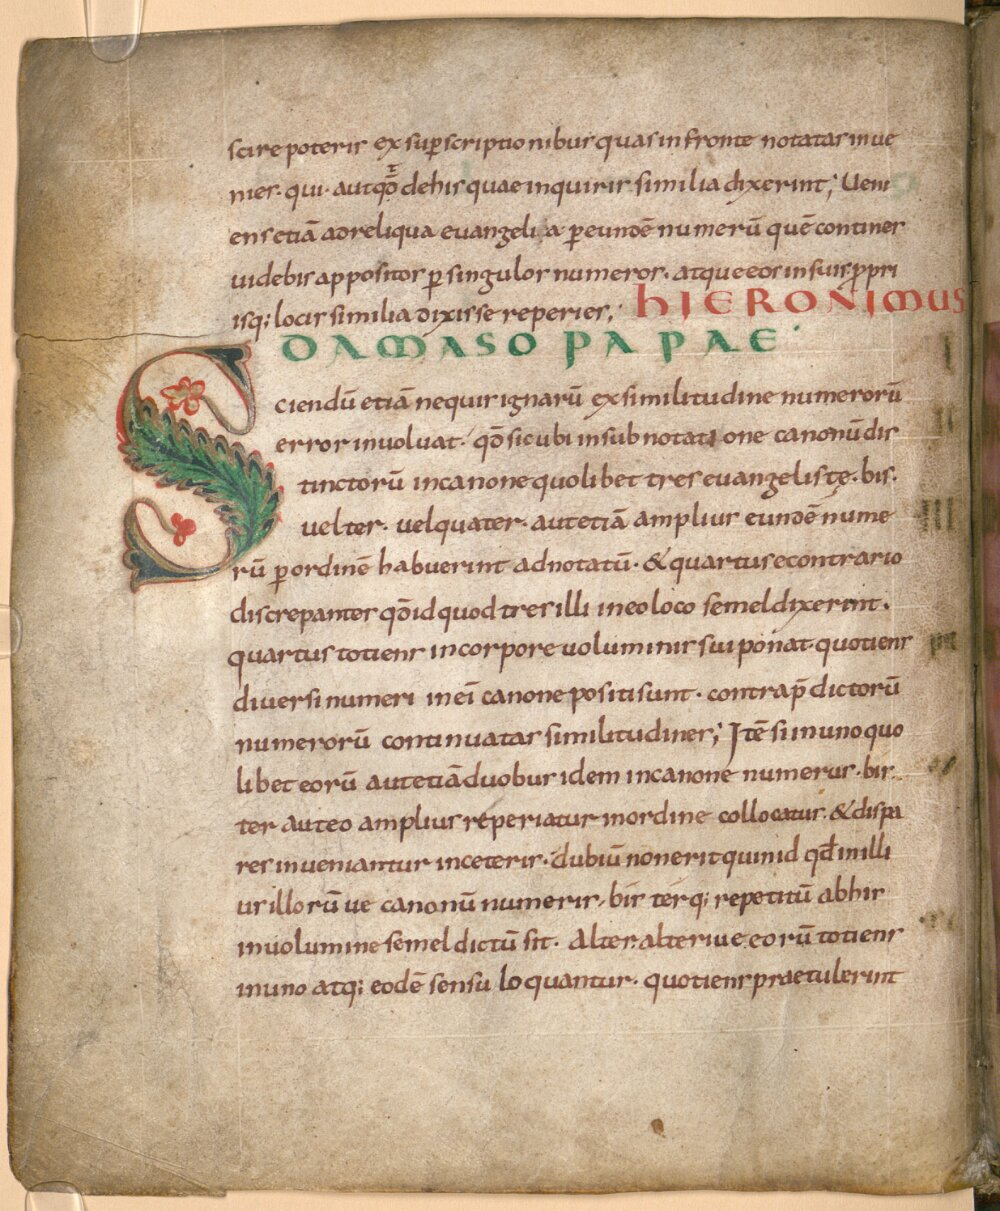 scire poteris ex sup̄scriptionibus quas in fronte notatas inue
nies. qui. aut qđo de his quae inquiris similia dixerint; Ueni
ens etiā ad reliqua euangelia p̱ eundē numerū quē continet
uidebis appositos p̱ singulos numeros. atque eos in suis p̱pri
isq; locis similia dixisse reperies;
HIERONIMUS
DAMASO PAPAE
Sciendū etiā nequis ignarū ex similitudine numerorū
error inuoluat. qđ sicubi in subnotatione canonū dis
tinctorū in canone quolibet tres euangelistę. bis.
uel ter. uel quater. aut etiā amplius eundē nume
rū p̱ ordinē habuerint adnotatū. & quartus e contrario
discrepantes qđ id quod tres illi in eo loco semel dixerint.
quartus totiens in corpore uoluminis sui ponat quotiens
diuersi numeri in ei canone positi sunt. contra p̄dictorū
numerorū continuatas similitudines; Itē si in uno quo
libet eorū aut etiā duobus idem in canone numerus. bis.
ter aut eo amplius reperiatur in ordine collocatus. & dispa
res inueniantur in ceteris. dubiū non erit quin id qđ in illi
us illorū ue canonū numeris. bis terq; repetitū ab his
in uolumine semel dictū sit. Alter. alteriue eorū totiens
in uno atq; eodē sensu loquantur. quotiens praetulerint